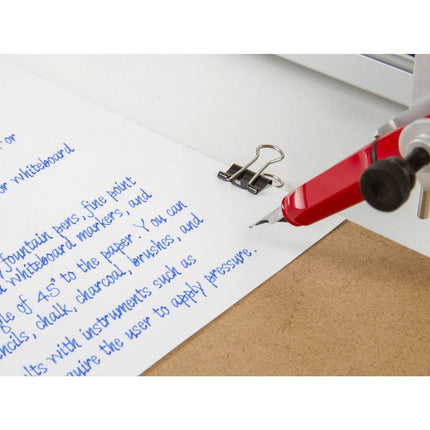 or
or whiteboard
fountain pens, fine point
whiteboard markers, and
gle of 45° to the paper. You can
ncils, chalk, charcoal, brushes, and
lts with instruments such as
uire the user to apply pressure.